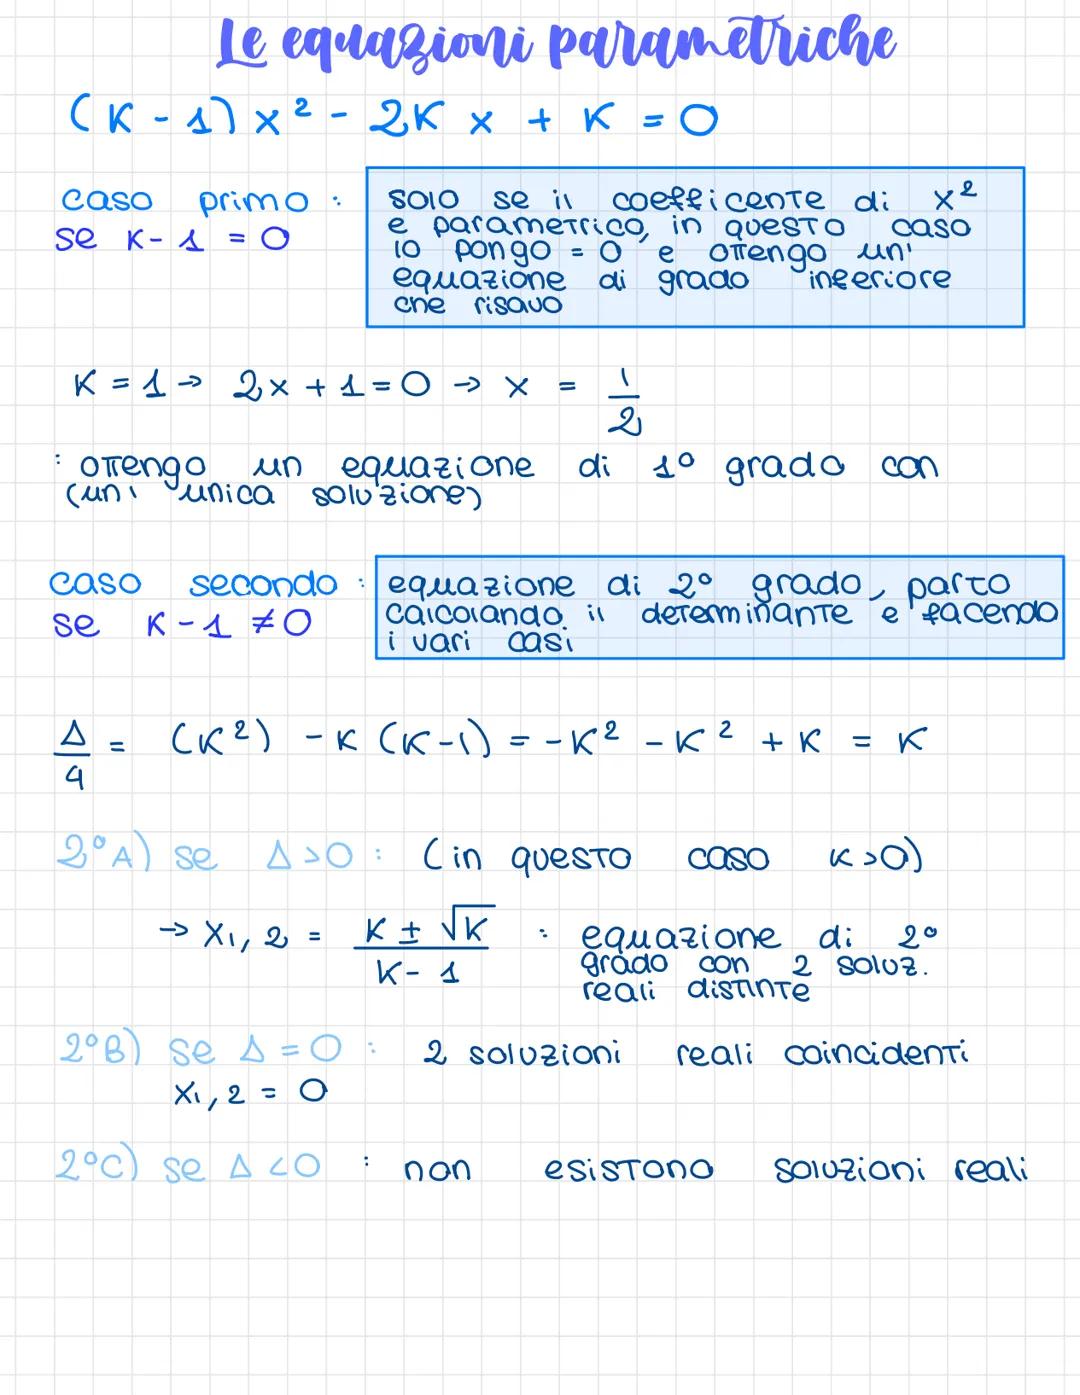 Le equazioni parametriche
(K - 1) x² - 2K x + K = 0
caso primo :
se K - 1 = 0
solo se il coefficente di x²
e parametrico, in questo caso
lo pongo = 0 e ottengo un'
equazione di grado inferiore
che risolvo
K = 1 → 2x + 1 = 0 → x = 1/2
: ottengo un equazione di 1° grado con
(un' unica soluzione)
caso secondo :
se K - 1 ≠ 0
equazione di 2° grado, parto
calcolando il determinante e facendo
i vari casi
Δ/4 = (K²) - K (K-1) = -K² - K² + K = K
2°A) se Δ>0 : (in questo caso K>0)
→ X1,2 = K ± √K / K - 1 : equazione di 2°
grado con 2 soluz.
reali distinte
2°B) se Δ = 0 : 2 soluzioni reali coincidenti
X1,2 = 0
2°C) se Δ <0 : non esistono soluzioni reali